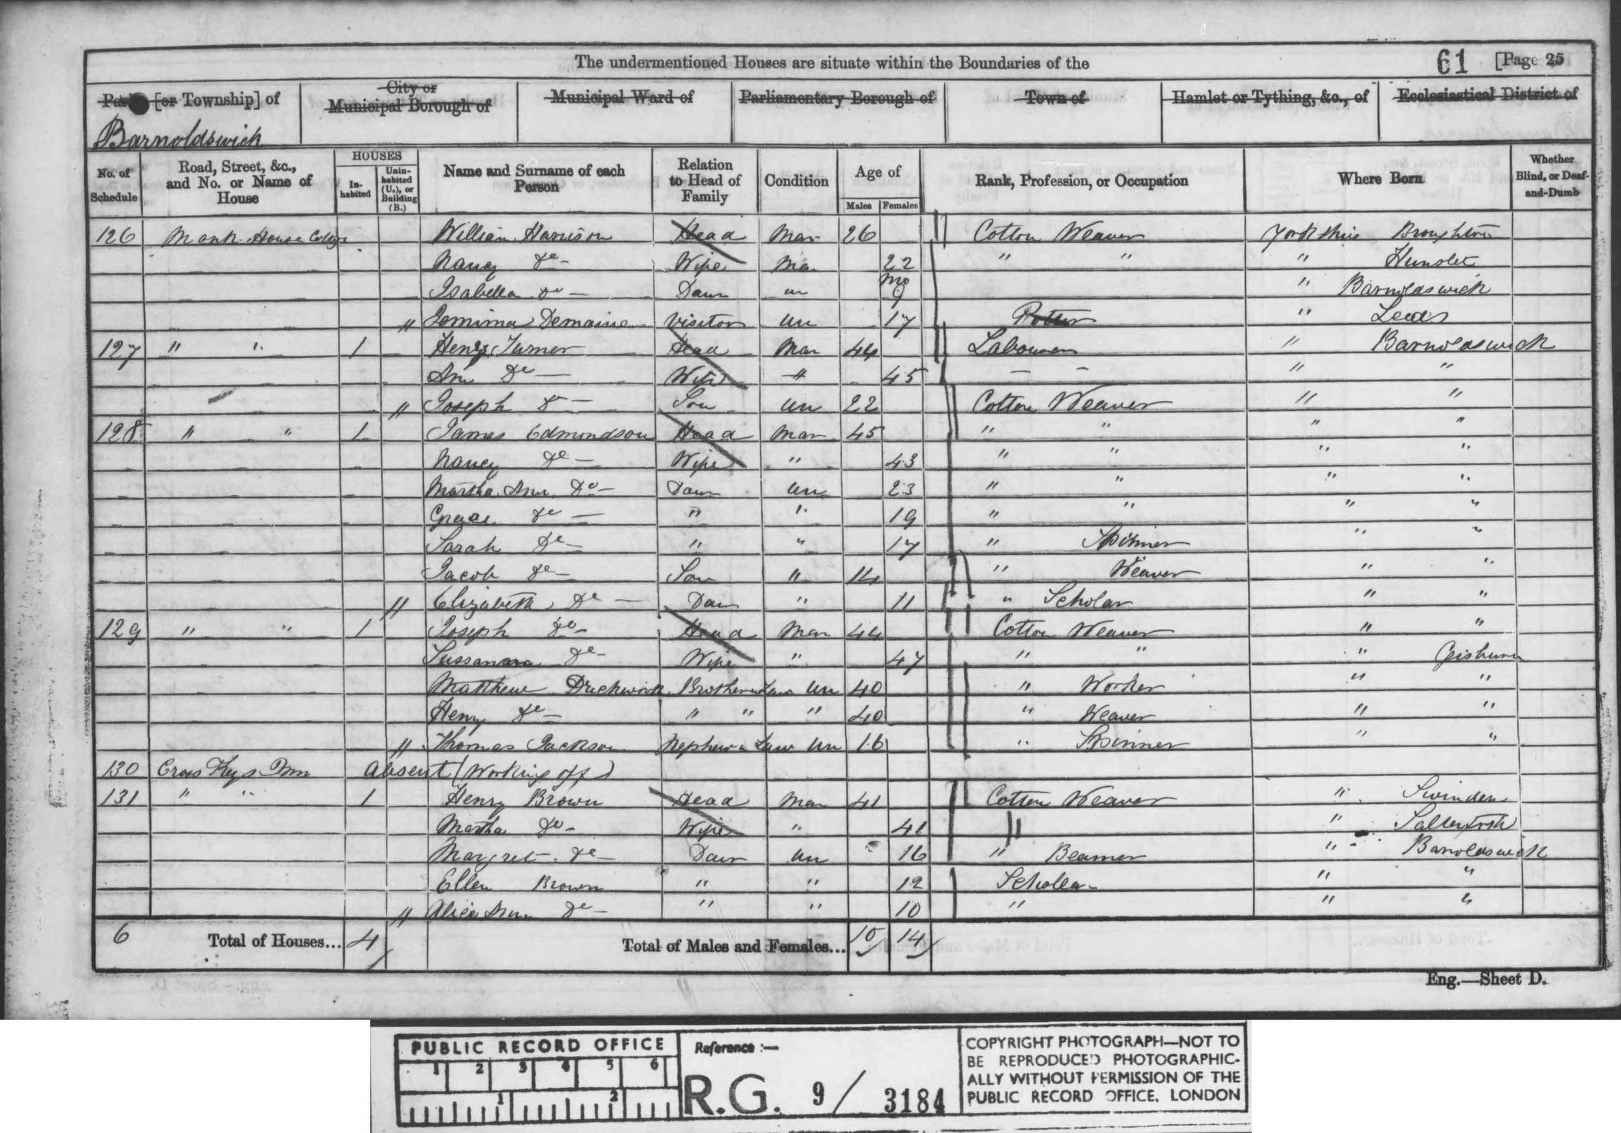 The undermentioned Houses are situate within the Boundaries of the 61 [Page 25
Parish [or Township] of City or Municipal Borough of Municipal Ward of Parliamentary Borough of Town of Hamlet or Tything, &c., of Ecclesiastical District of
Barnoldswick
No. of Schedule Road, Street, &c., and No. or Name of House HOUSES Inhabited Uninhabited (U.), or Building (B.) Name and Surname of each Person Relation to Head of Family Condition Age of Males Females Rank, Profession, or Occupation Where Born Whether Blind, or Deaf-and-Dumb
126 Monk House William Harrison Head Mar 26 Cotton Weaver Yorkshire Broughton
Nancy Do — Wife Mar 22 " " " Hunslet
Isabella Do — Daur un 9 mo " Barnoldswick
// Jemima Demaine Visitor un 17 " Leeds
127 " " 1 Henry Turner Head Mar 44 Labourer " Barnoldswick
Ann Do — Wife " 45 — — " "
// Joseph Do — Son un 22 Cotton Weaver " "
128 " " 1 James Edmondson Head Mar 45 " " " "
Nancy Do — Wife " 43 " " " "
Martha Ann Do — Daur un 23 " " " "
Grace Do — " " 19 " " " "
Sarah Do — " " 17 " Spinner " "
Jacob Do — Son " 14 " Weaver " "
// Elizabeth Do — Daur " 11 " Scholar " "
129 " " 1 Joseph Do — Head Mar 44 Cotton Weaver " "
Sussannna Do — Wife " 47 " " " Gisburn
Matthew Brother in Law un 40 " Worker " "
Henry Do — " " " 40 " Weaver " "
// Thomas Jackson Nephew in Law un 16 " Spinner " "
130 Cross Keys Inn Absent (Working off)
131 " " 1 Henry Brown Head Mar 41 Cotton Weaver " Swinden
Martha Do — Wife " 41 " " Salterforth
Margret Do — Daur un 16 " Beamer " Barnoldswick
Ellen Brown " " 12 Scholar " "
// Alice Ann Do — " " 10 " " "
6 Total of Houses... 4 Total of Males and Females... 10 14
Eng.—Sheet D.
PUBLIC RECORD OFFICE
1 2 3 4 5 6
1 2
Reference :—
R.G. 9 / 3184
COPYRIGHT PHOTOGRAPH—NOT TO
BE REPRODUCED PHOTOGRAPHIC-
ALLY WITHOUT PERMISSION OF THE
PUBLIC RECORD OFFICE, LONDON